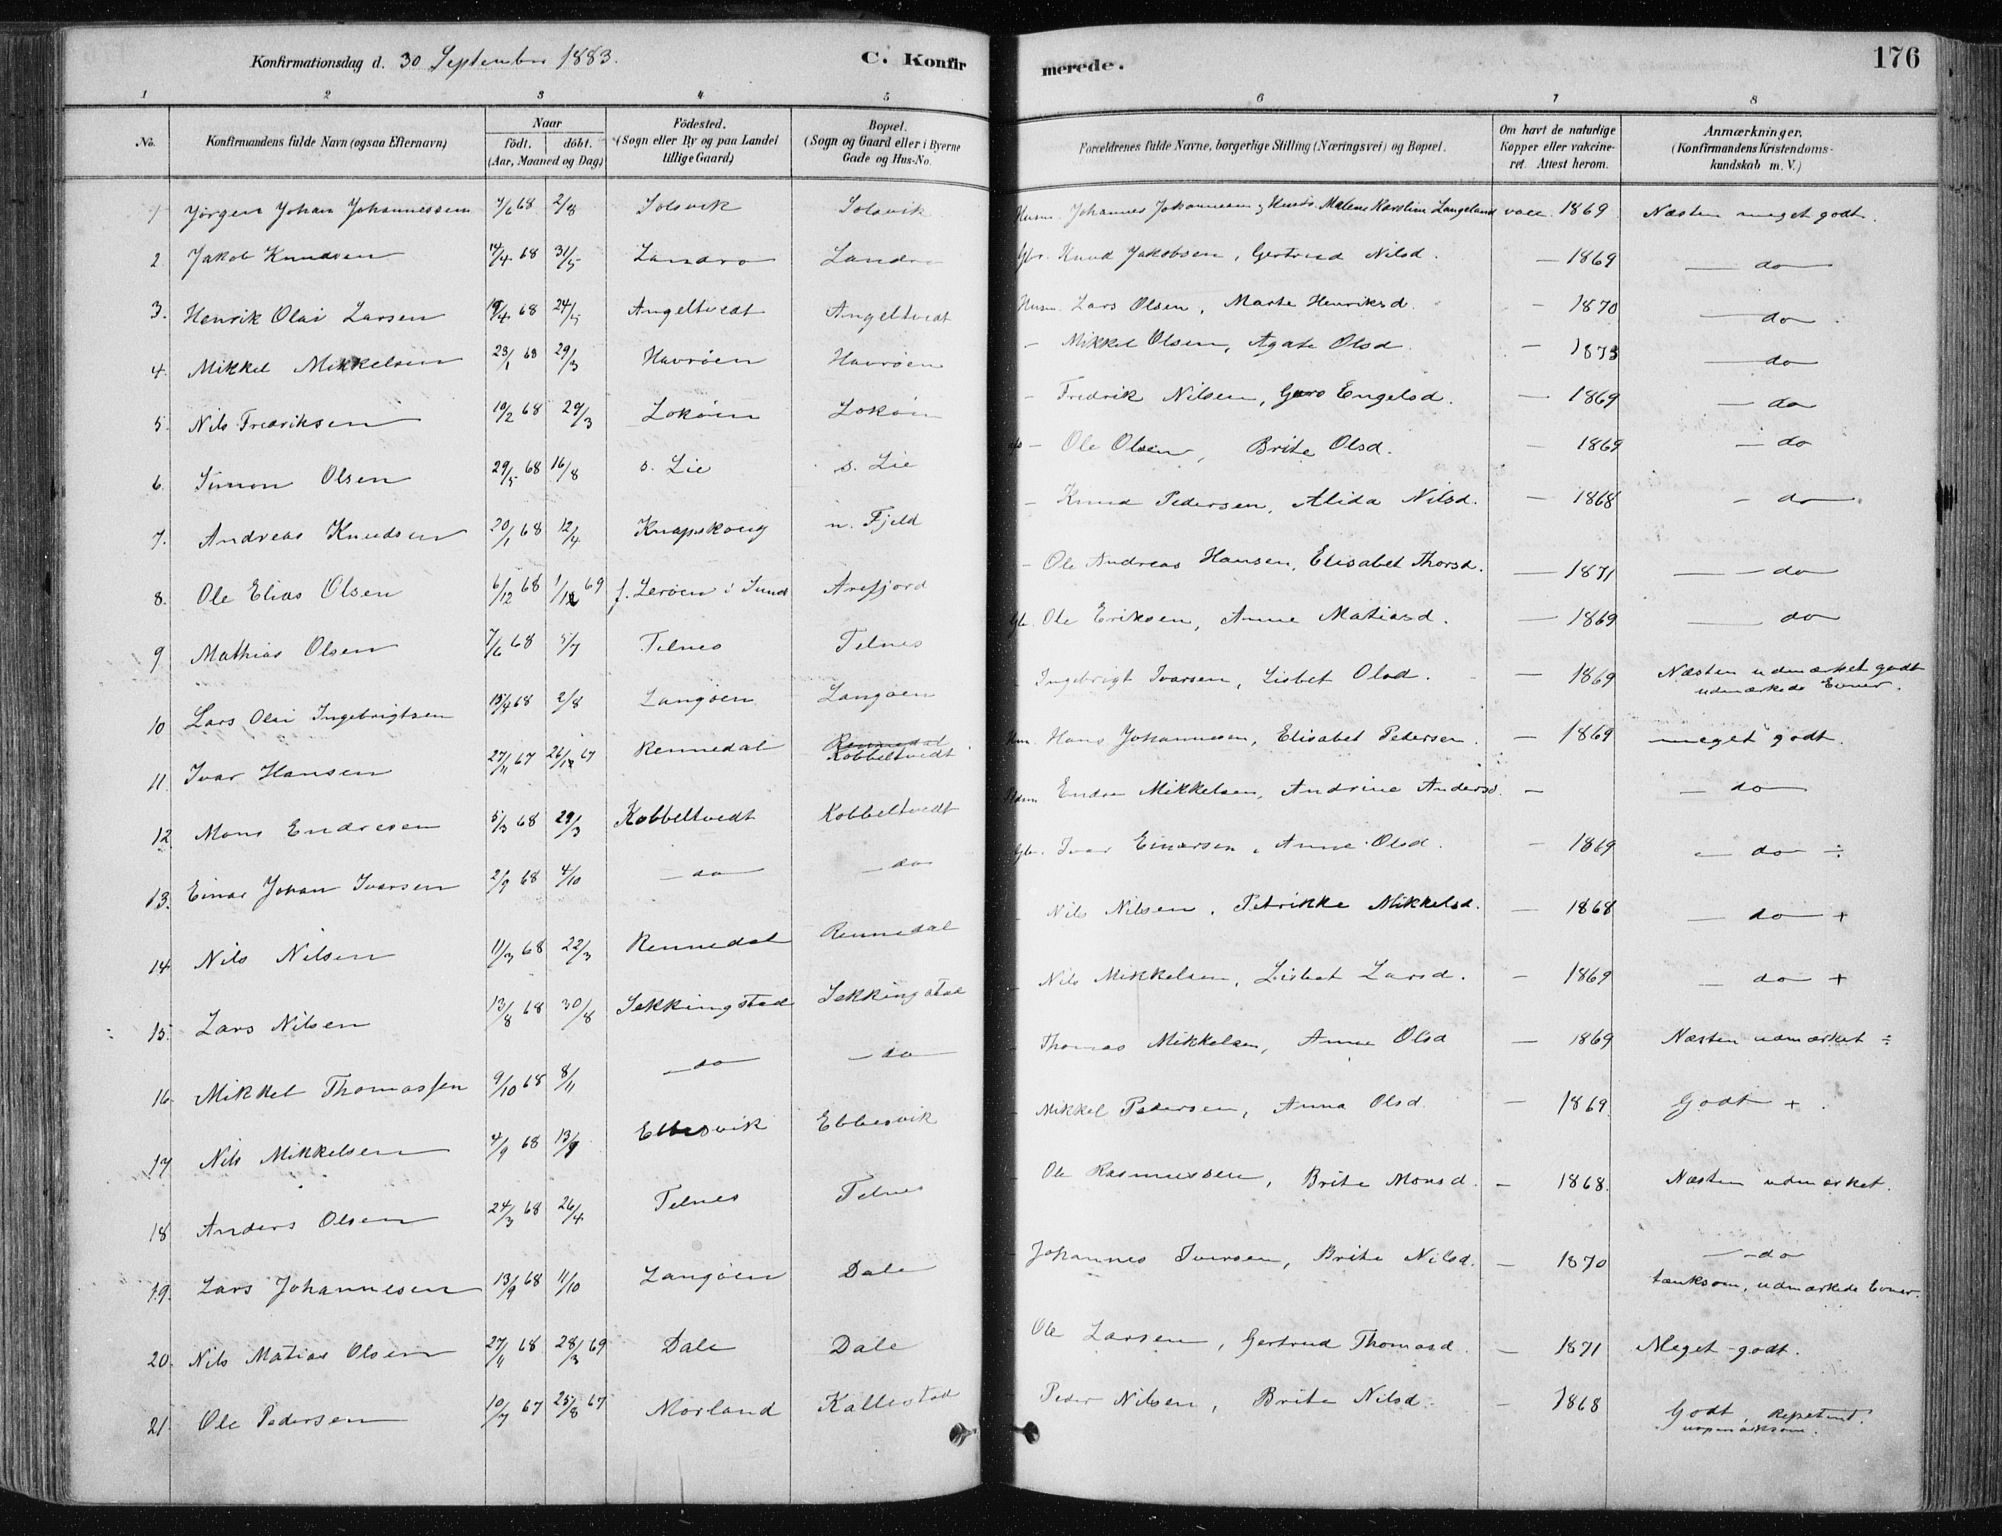 Konfirmationsdag d. 30 September 1883. C. Konfirmerede. 176
1 2 3 4 5 6 7 8
No. Konfirmandens fulde Navn (ogsaa Efternavn) Naar födt. döbt. (Aar, Maaned og Dag) Födested. (Sogn eller By og paa Landet tillige Gaard) Bopæl. (Sogn og Gaard eller i Byerne Gade og Hus-No. Forældrenes fulde Navne, borgerlige Stilling (Næringsvei) og Bopæl. Om havt de naturlige Kopper eller vakcineret. Attest herom. Anmærkninger. (Konfirmandens Kristendomskundskab m. V.)
1 Jörgen Johan Johannessen 4/6 68 2/8 Solsvik Solsvik Husm. Johannes Johannesen og Hustr. Malene Karoline Langeland vacc. 1869 Næsten meget godt.
2. Jakob Knudsen 14/4 68 31/5 Landro Landro Gbr. Knud Jakobsen, Gertrud Nilsd. — 1869 — do —
3. Henrik Olai Larsen 19/4 68 24/5 Angeltvedt Angeltvedt Husm. Lars Olsen, Marte Henriksd. — 1870 — do —
4. Mikkel Mikkelsen 23/1 68 29/3 Havröen Havröen - Mikkel Olsen, Agate Olsd. — 1873 — do
5. Nils Fredriksen 10/2 68 29/3 Loköen Loköen - Fredrik Nilsen, Guro Engelsd. — 1869 — do
6. Simon Olsen 29/5 68 16/8 s. Lie s. Lie - Ole Olsen, Brite Olsd. — 1869 — do
7. Andreas Knudsen 20/1 68 12/4 Knapskoug n. Fjeld - Knud Pedersen, Alida Nilsd. — 1868 — do
8. Ole Elias Olsen 6/12 68 1/12 69 f. Leröen i Sund Arefjord - Ole Andreas Hansen, Elisabet Thorsd. — 1871 — do
9 Mathias Olsen 7/6 68 5/7 Telnes Telnes Gb. Ole Eriksen, Anne Matiasd. — 1869 — do
10 Lars Olai Ingebrigtsen 15/4 68 2/8 Langöen Langöen - Ingebrigt Ivarsen, Lisbet Olsd. — 1869 Næsten udmærket godt udmærkede Evner.
11. Ivar Hansen 27/11 67 26/12 67 Rennedal Rennedal Kobbeltvedt Hm. Hans Johannesen, Elisabet Petersen. — 1869 meget godt.
12 Mons Endresen 5/3 68 29/3 Kobbeltvedt Kobbeltvedt Endre Mikkelsen, Andrine Andersd. — — do —
13. Einar Johan Ivarsen 2/9 68 4/10 — do — — do Gbr. Ivar Einarsen, Anne Olsd. — 1869 — do — ÷
14 Nils Nilsen 11/3 68 22/3 Rennedal Rennedal - Nils Nilsen, Petrikke Mikkelsd. — 1868 — do — +
15. Lars Nilsen 13/8 68 30/8 Sekkingstad Sekkingstad - Nils Mikkelsen, Lisbet Larsd. — 1869 — do — +
16. Mikkel Thomassen 9/10 68 8/11 — do — do — - Thomas Mikkelsen, Anne Olsd — 1869 Næsten udmærket ÷
17 Nils Mikkelsen 4/9 68 13/9 Ebbesvik Ebbesvik - Mikkel Pedersen, Anna Olsd. — 1869. Godt +.
18 Anders Olsen 24/3 68 26/4 Telnes Telnes - Ole Rasmussen, Brite Monsd. — 1868. Næsten udmærket.
19. Lars Johannesen 13/9 68 11/10 Langöen Dale - Johannes Iversen, Brite Nilsd. — 1870 — do tænksom, udmærkede Evner.
20. Nils Matias Olsen 27/11 68 28/3 69 Dale Dale Ole Larsen, Gertrud Thomasd. — 1871 Meget godt.
21. Ole Pedersen 10/7 67 25/8 67 Morland Kallestad Peder Nilsen, Brite Nilsd. — 1868 Godt, Repetent. uopmærksom.